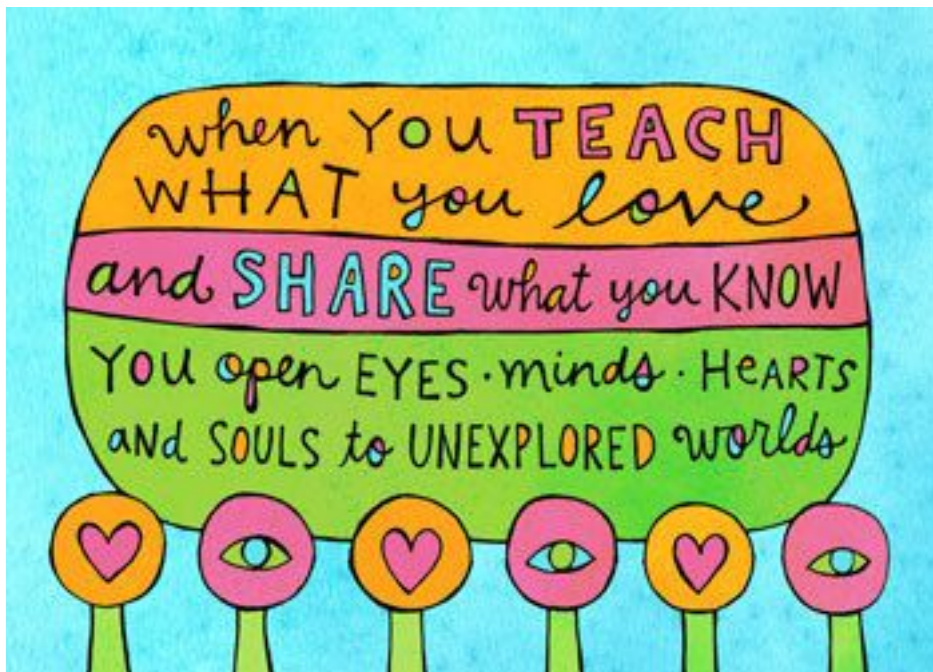 when YOU TEACH
WHAT you love
and SHARE what you KNOW
YOU open EYES · minds · HeARTS
aNd SOULS to UNEXPLORED worlds